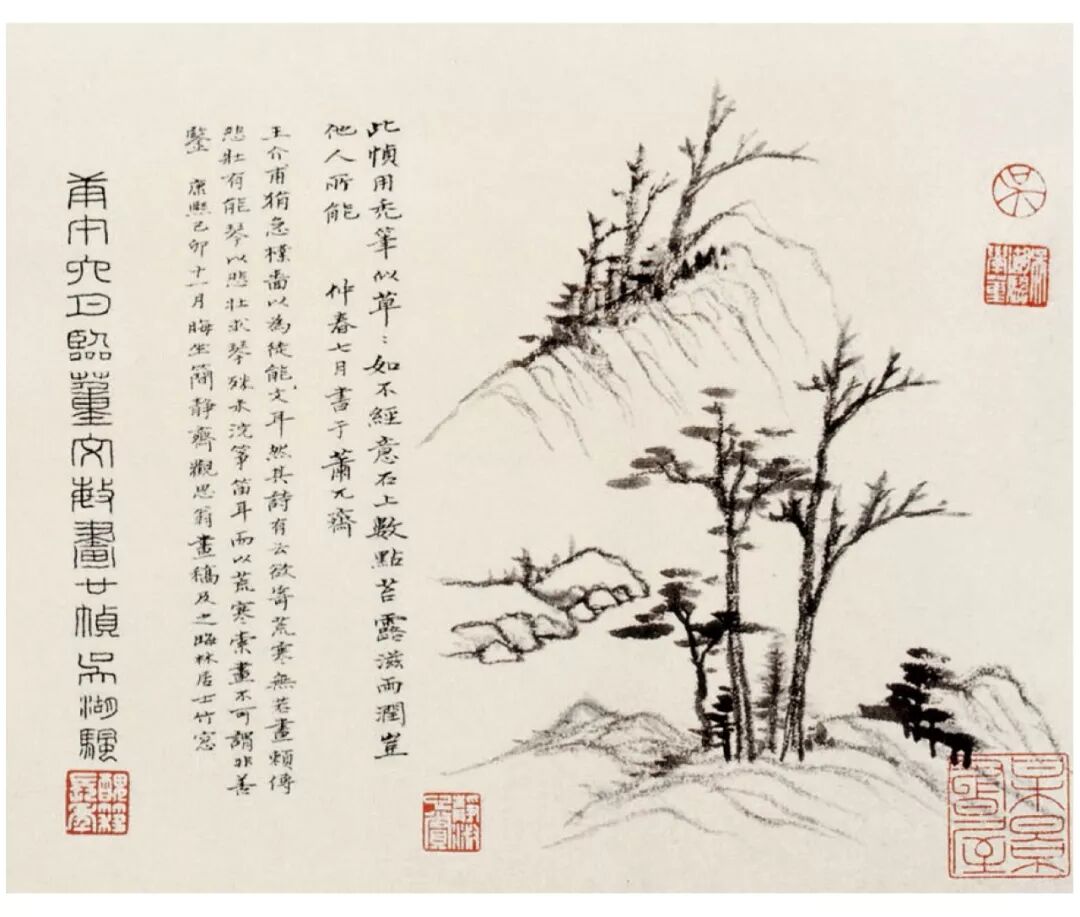 此幀用禿筆似草〻如不經意石上數點苔露滋雨潤豈
他人所能 仲春七月書于蕭兀齋
王介甫狷急樸嗇以為徒能文耳然其詩有云欲寄荒寒無善畫賴傳
悲壯有能琴以悲壯求琴殊未浣箏笛耳而以荒寒索畫不可謂非善
鑒 康熙己卯十一月晦坐簡靜齋觀思翁畫稿及之晦林居士竹窓
甲申六月臨董文敏畫廿幀吳湖颿